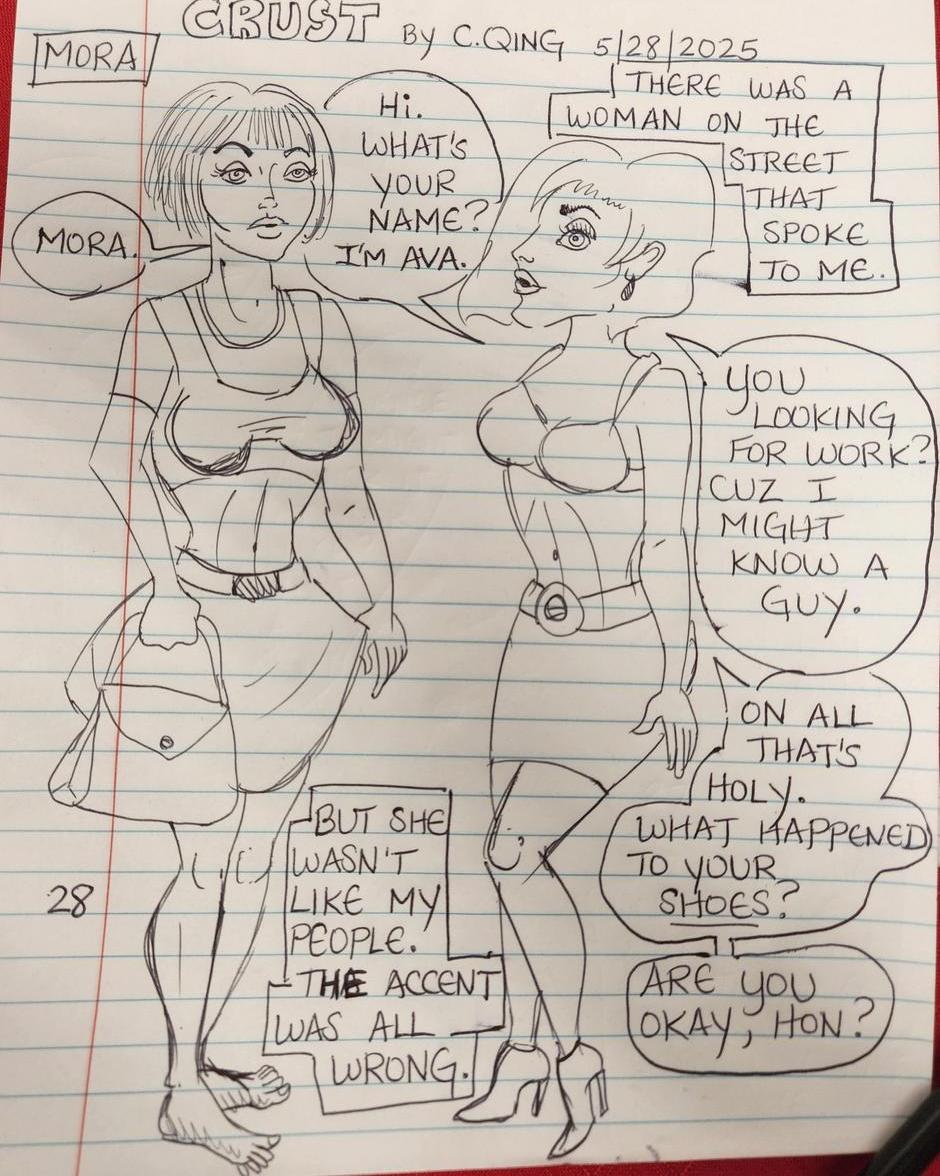 CRUST BY C.QING 5/28/2025
MORA
THERE WAS A
WOMAN ON THE
STREET
THAT
SPOKE
TO ME.
Hi.
WHAT'S
YOUR
NAME?
I'M AVA.
MORA.
YOU
LOOKING
FOR WORK?
CUZ I
MIGHT
KNOW A
GUY.
ON ALL
THAT'S
HOLY.
WHAT HAPPENED
TO YOUR
SHOES?
ARE YOU
OKAY, HON?
BUT SHE
WASN'T
LIKE MY
PEOPLE.
THE ACCENT
WAS ALL
WRONG.
28